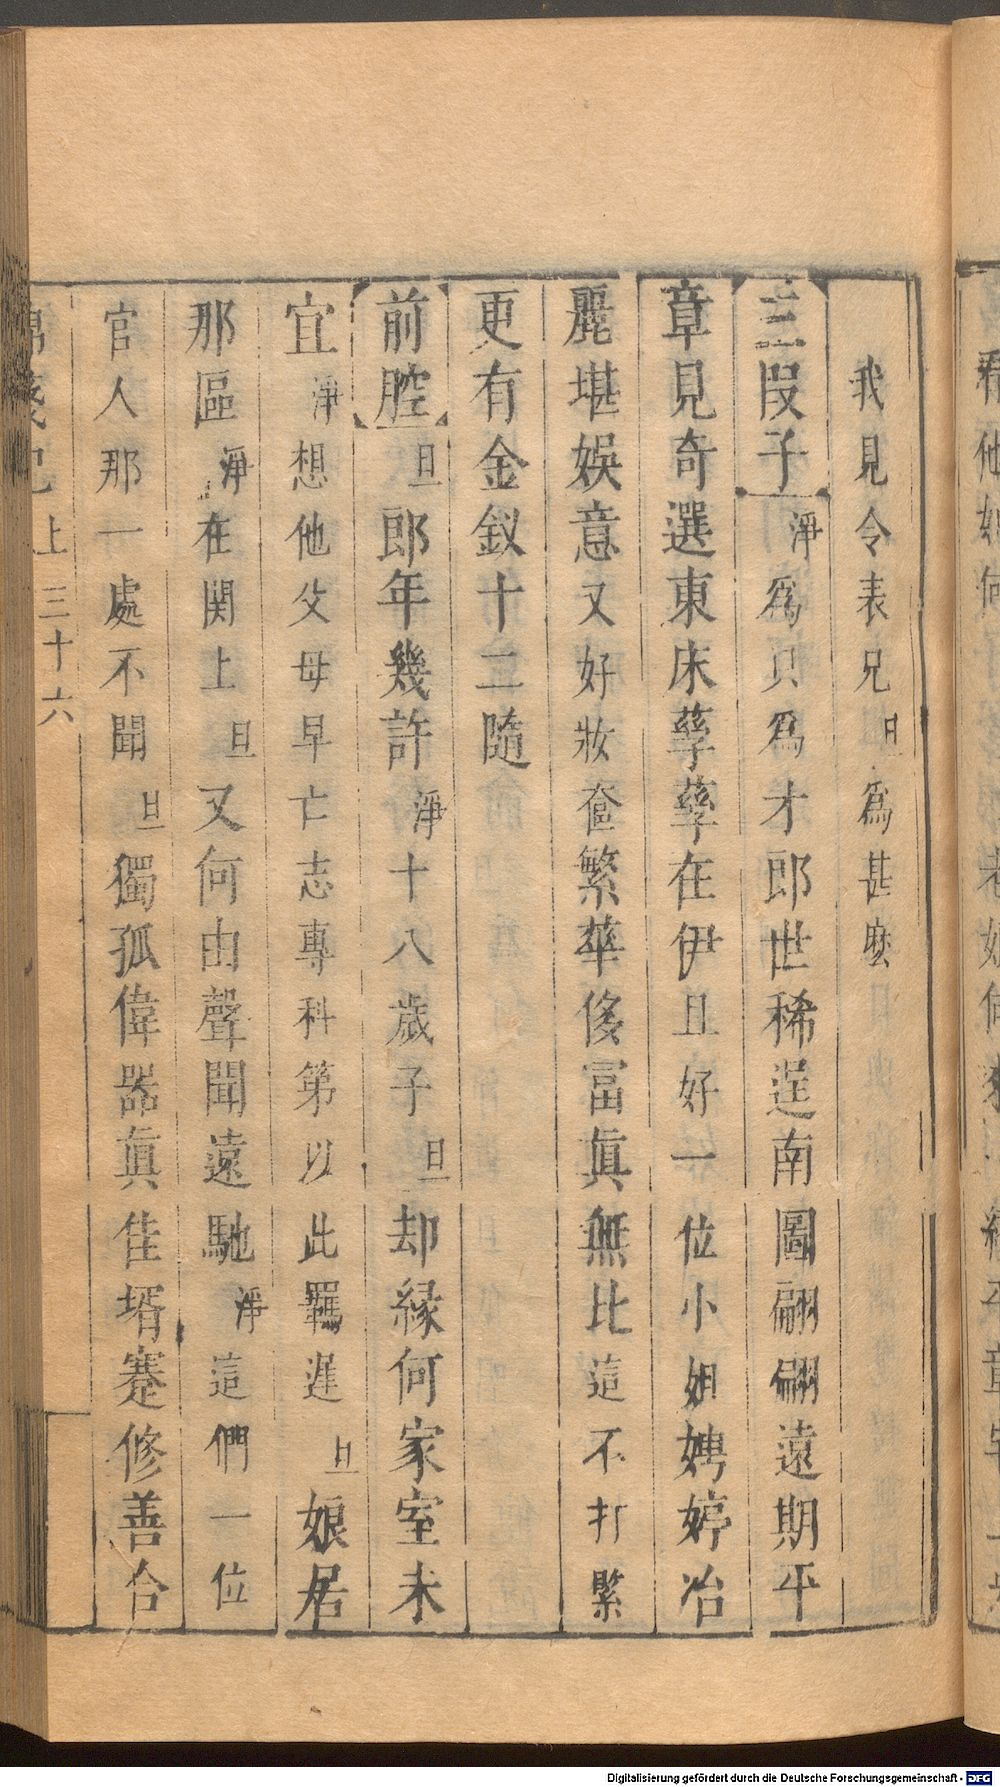 我見令表兄旦為甚麽
三段子淨爲只爲才郎世稀逞南圖翩翩遠期平
章見奇選東床孽孽在伊且好一位小姐娉婷冶
麗堪娛意又好妝奩繁華侈冨眞無比這不打緊
更有金釵十二隨
前腔旦郎年幾許淨十八歲子旦却緣何家室未
宜淨想他父母早亡志專科第以此羈遲旦娘居
那區淨在関上旦又何由聲聞遠馳淨這們一位
官人那一處不聞旦獨孤偉器眞佳壻蹇修善合
上 三十六
Digitalisierung gefördert durch die Deutsche Forschungsgemeinschaft - DFG